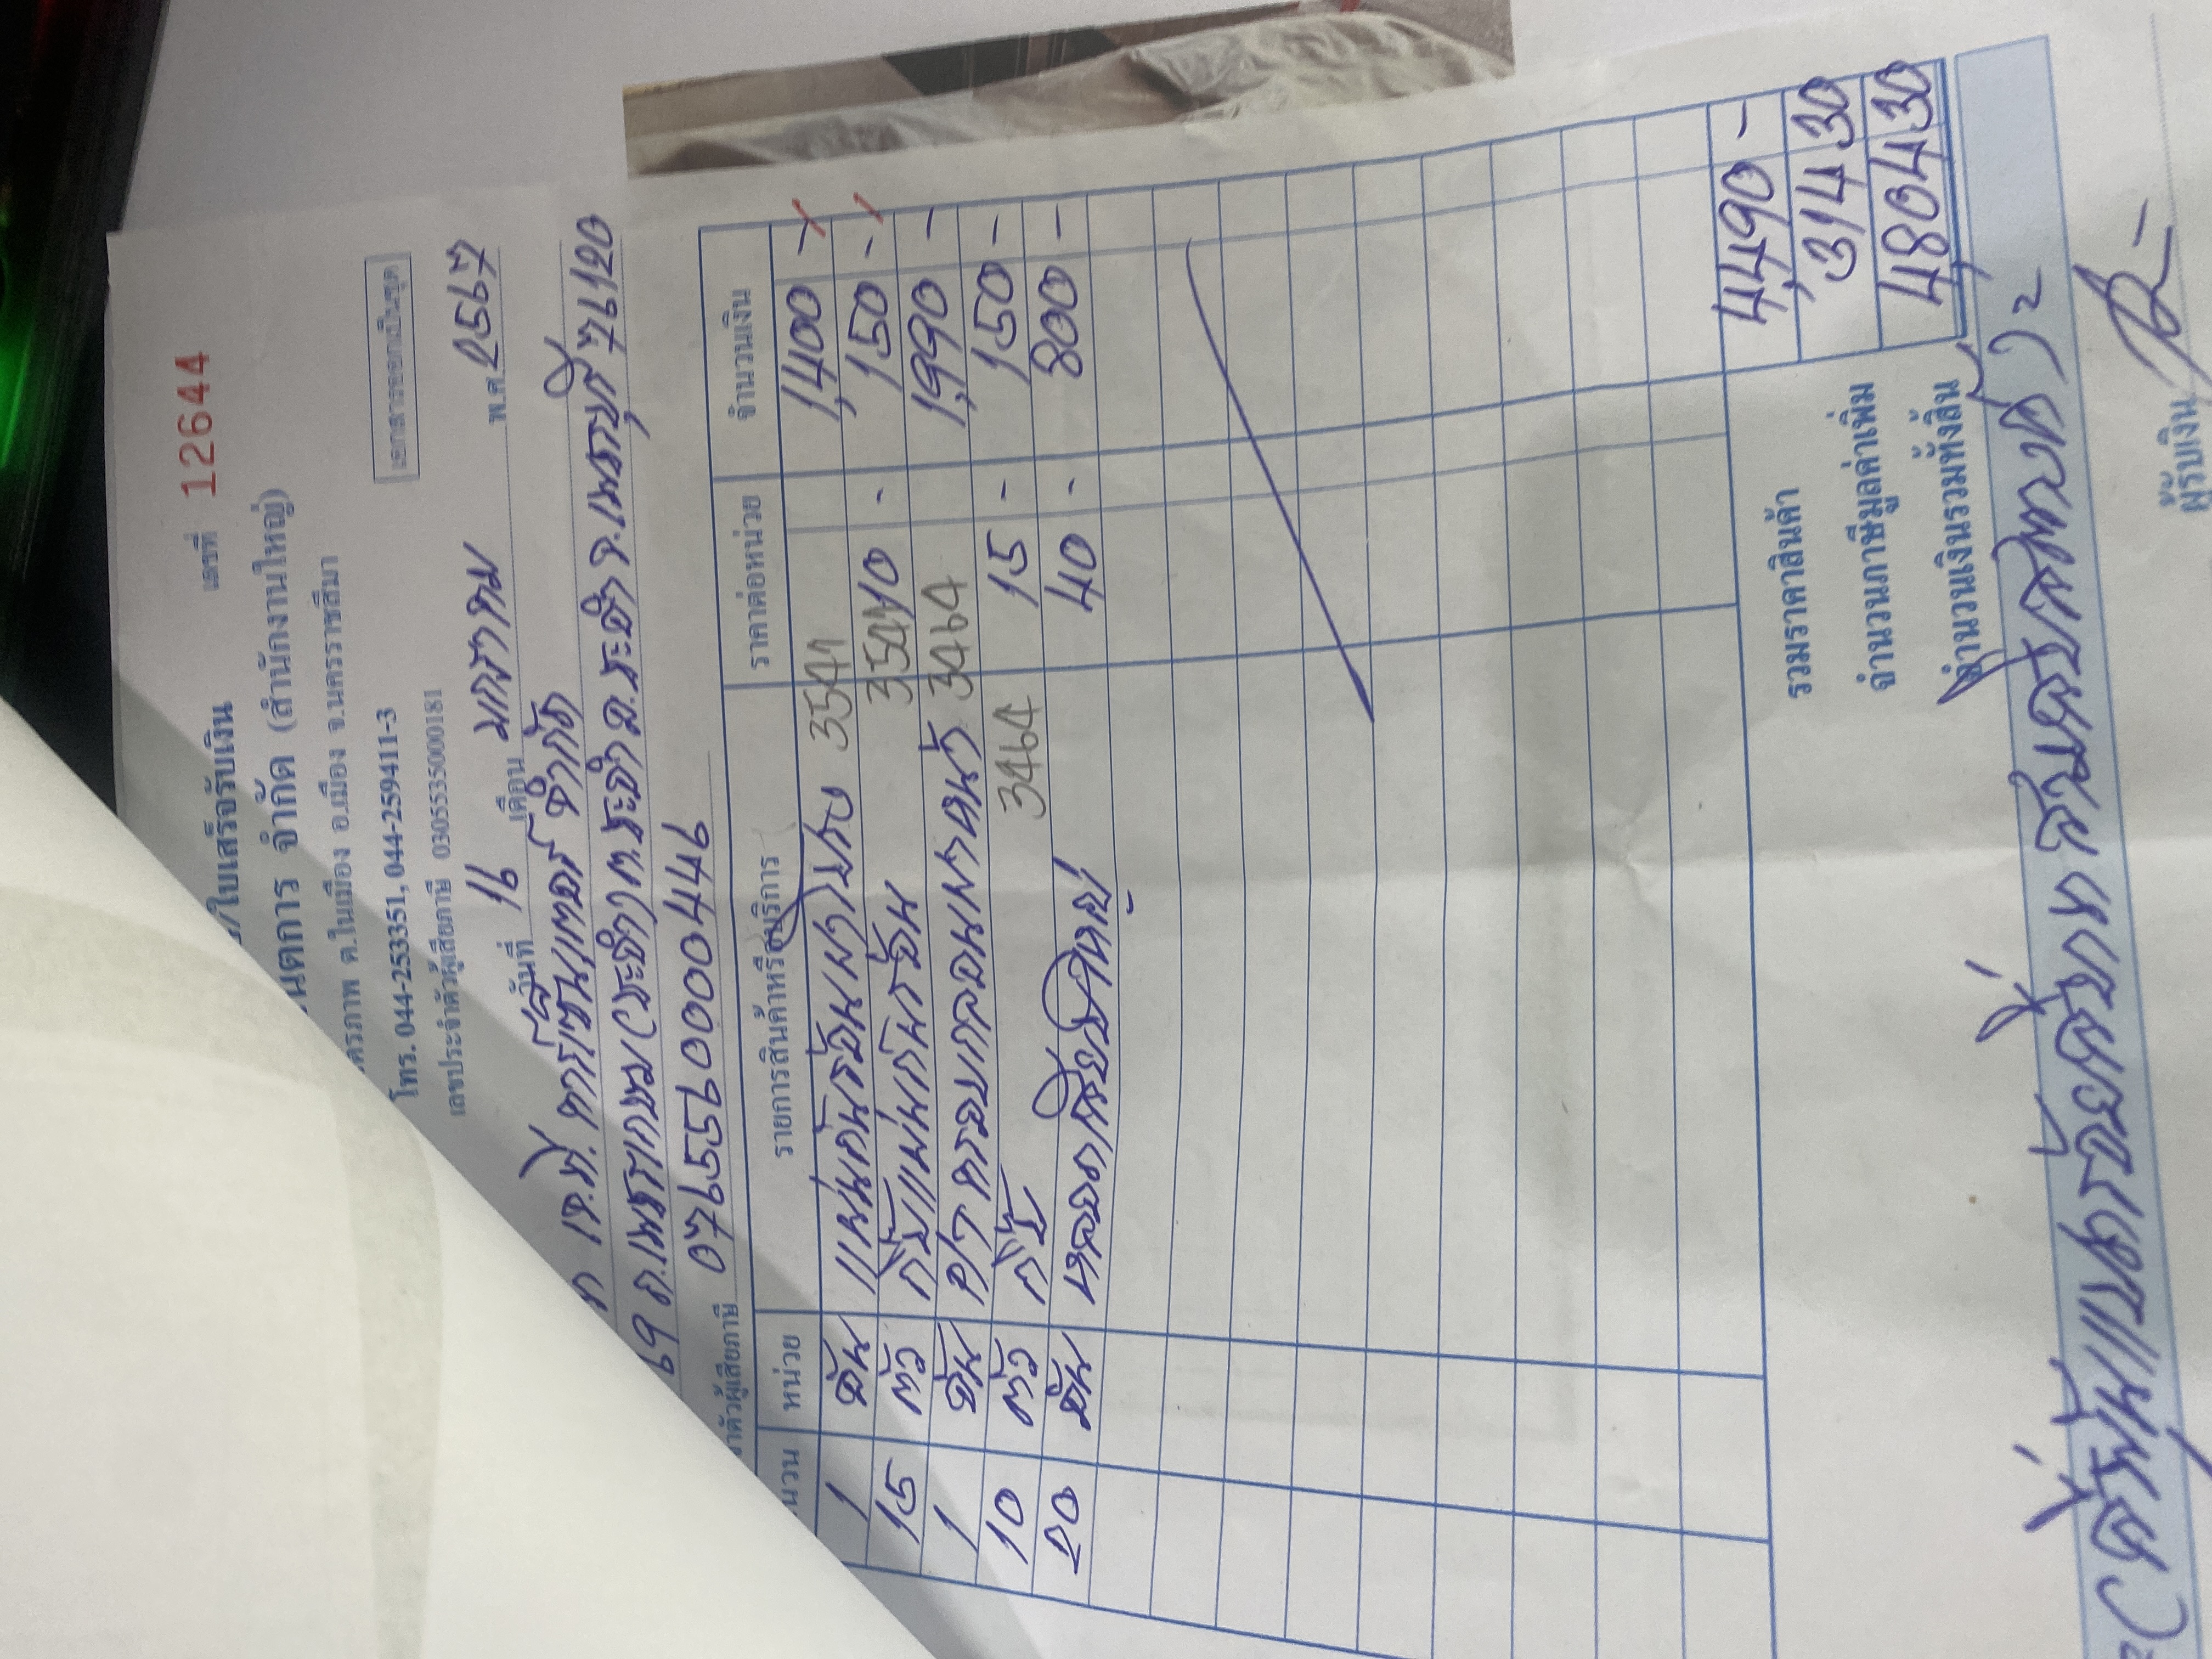 /ใบเสร็จรับเงิน เลขที่ 12644
นตการ จำกัด (สำนักงานใหญ่)
ตรภาพ ต.ในเมือง อ.เมือง จ.นครราชสีมา
เอกสารออกเป็นชุด
โทร. 044-253351, 044-259411-3
เลขประจำตัวผู้เสียภาษี 0305535000181
วันที่ 16 เดือน มกราคม พ.ศ. 2567
จำกัด
69 ถ.เพชรเกษม จ.เพชรบุรี 76120
ตัวผู้เสียภาษี 0765590004446
นวน หน่วย รายการสินค้าหรือบริการ ราคาต่อหน่วย จำนวนเงิน
1 อัน แผ่นกันร้อน 3541 1,400 -
15 ตัว กิ๊บแผ่นกันร้อน 3541 10 - 150 -
1 อัน 3464 1,990 -
10 ตัว กิ๊บ 3464 15 - 150 -
20 อัน หลอด 40 - 800 -
รวมราคาสินค้า 4,490 -
จำนวนภาษีมูลค่าเพิ่ม 314 30
จำนวนเงินรวมทั้งสิ้น 4,804 30
(สี่พันแปดร้อยสี่บาทสามสิบสตางค์)
ผู้รับเงิน